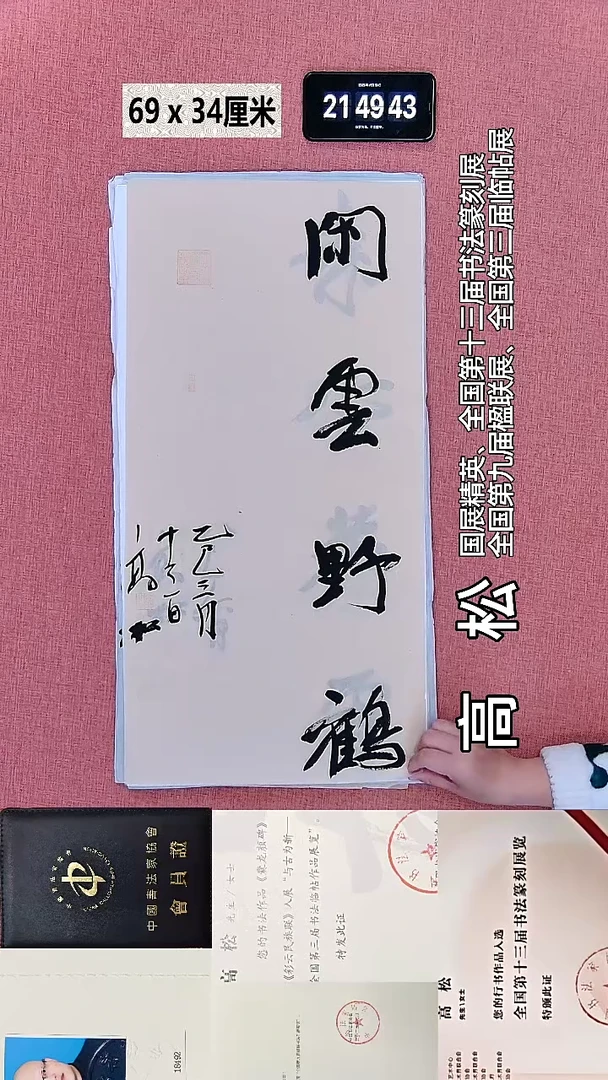 69 x 34厘米
21 49 43
閑
雲
野
鶴
乙巳三月
十六日
高松
高 松
国展精英、全国第十三届书法篆刻展
全国第九届楹联展、全国第三届临帖展
中國書法家協會
會員證
18492
高 松 先生/女士
您的书法作品《爨龙颜碑》
《彩云民族联》入展“与古为新—
全国第三届书法临帖作品展览”，
特发此证
高 松
先生\女士
您的行书作品入选
全国第十三届书法篆刻展览
特颁此证